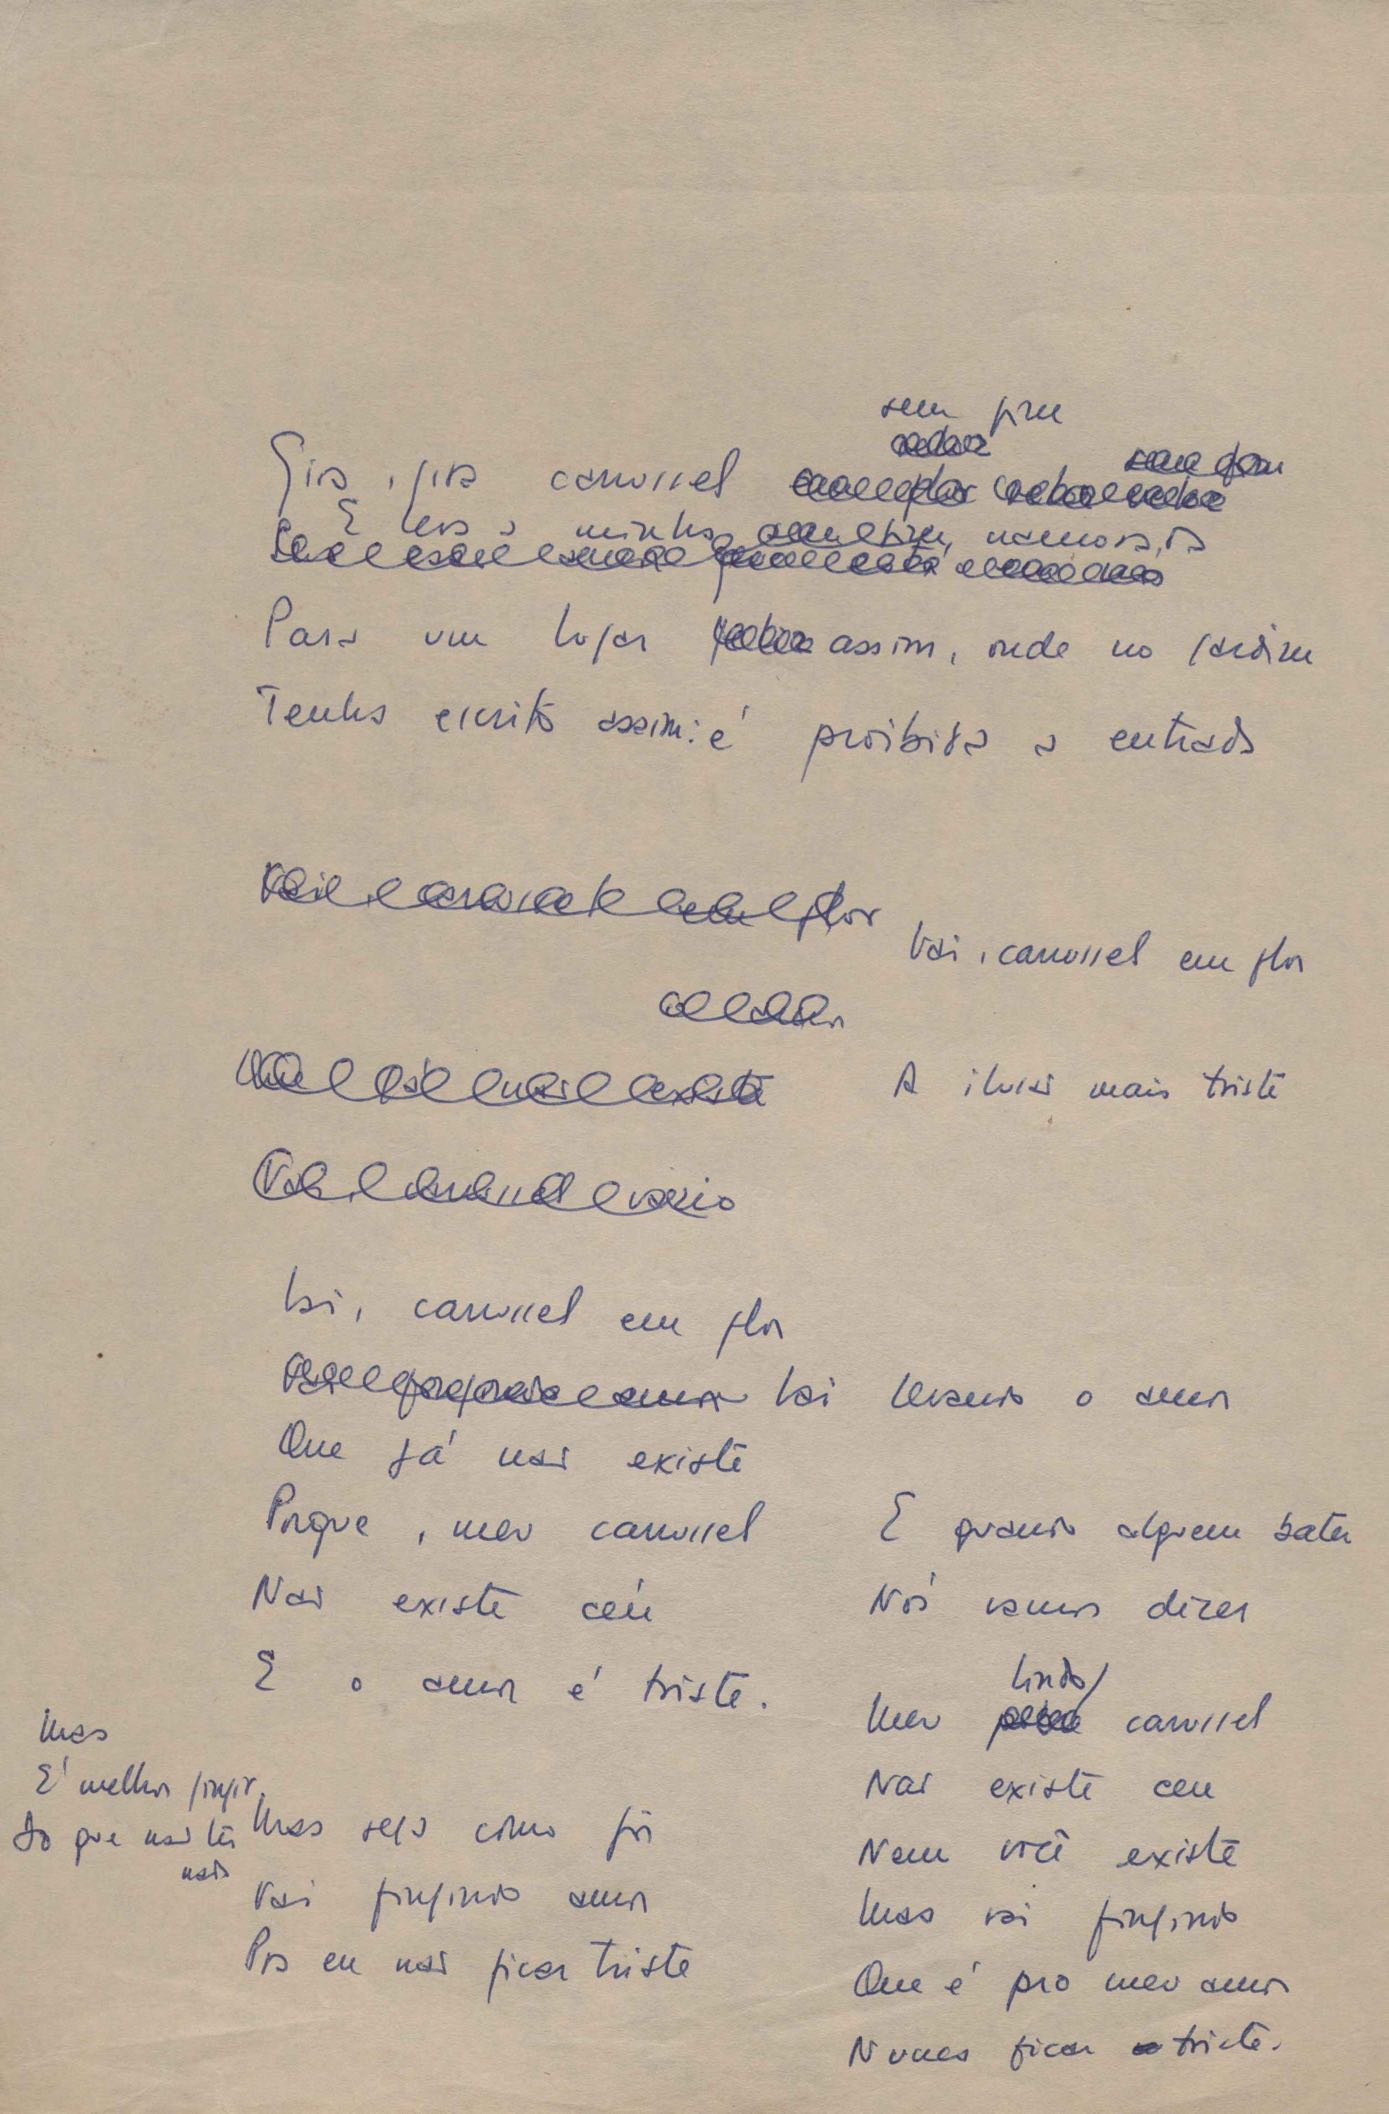 sem fim
Gira, gira carrossel
E leva a minha namorada
Para um lugar assim, onde no jardim
Tenha escrito assim: é proibida a entrada
Vai, carrossel em flor
Vai, carrossel em flor
A ilusão mais triste
Vai, carrossel vazio
Vai, carrossel em flor
Vai levando o amor
Que já não existe
Porque, meu carrossel
Não existe céu
E o amor é triste.
Mas
É melhor fingir
Do que não ter
nada
Mas seja como for
Vai fingindo amor
Pra eu não ficar triste
E quando alguem bater
Nós vamos dizer
lindo
Meu carrossel
Não existe ceu
Nem você existe
Mas vai fingindo
Que é pro meu amor
Nunca ficar triste.